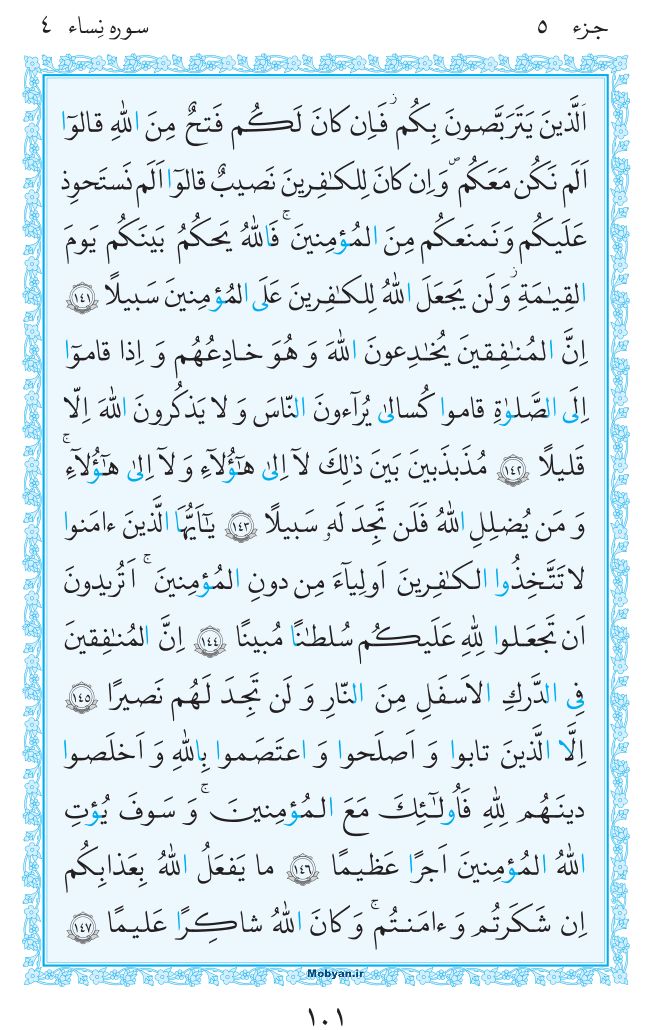 جزء ٥
سوره نساء ٤
اَلَّذينَ يَتَرَبَّصونَ بِكُم ۚ فَاِن كانَ لَكُم فَتحٌ مِنَ اللهِ قالوٓا
اَلَم نَكُن مَعَكُم ۖ وَ اِن كانَ لِلكٰفِرينَ نَصيبٌ قالوٓا اَلَم نَستَحوِذ
عَلَيكُم وَ نَمنَعكُم مِنَ المُؤمِنينَ ۚ فَاللهُ يَحكُمُ بَينَكُم يَومَ
القِيٰمَةِ ۗ وَ لَن يَجعَلَ اللهُ لِلكٰفِرينَ عَلَى المُؤمِنينَ سَبيلًا ﴿١٤١﴾
اِنَّ المُنٰفِقينَ يُخٰدِعونَ اللهَ وَ هُوَ خادِعُهُم وَ اِذا قاموٓا
اِلَى الصَّلوٰةِ قاموا كُسالىٰ يُرآءونَ النّاسَ وَ لا يَذكُرونَ اللهَ اِلّا
قَليلًا ﴿١٤٢﴾ مُذَبذَبينَ بَينَ ذٰلِكَ لآ اِلىٰ هٰٓؤُلآءِ وَ لآ اِلىٰ هٰٓؤُلآءِ ۚ
وَ مَن يُضلِلِ اللهُ فَلَن تَجِدَ لَهۥ سَبيلًا ﴿١٤٣﴾ يٰٓاَيُّهَا الَّذينَ ءامَنوا
لا تَتَّخِذُوا الكٰفِرينَ اَولِيآءَ مِن دونِ المُؤمِنينَ ۚ اَتُريدونَ
اَن تَجعَلوا لِلّٰهِ عَلَيكُم سُلطٰنًا مُبينًا ﴿١٤٤﴾ اِنَّ المُنٰفِقينَ
فِى الدَّركِ الاَسفَلِ مِنَ النّارِ وَ لَن تَجِدَ لَهُم نَصيرًا ﴿١٤٥﴾
اِلَّا الَّذينَ تابوا وَ اَصلَحوا وَ اعتَصَموا بِاللهِ وَ اَخلَصوا
دينَهُم لِلّٰهِ فَاُولٰٓئِكَ مَعَ المُؤمِنينَ ۚ وَ سَوفَ يُؤتِ
اللهُ المُؤمِنينَ اَجرًا عَظيمًا ﴿١٤٦﴾ ما يَفعَلُ اللهُ بِعَذابِكُم
اِن شَكَرتُم وَ ءامَنتُم ۚ وَ كانَ اللهُ شاكِرًا عَليمًا ﴿١٤٧﴾
Mobyan.ir
١٠١